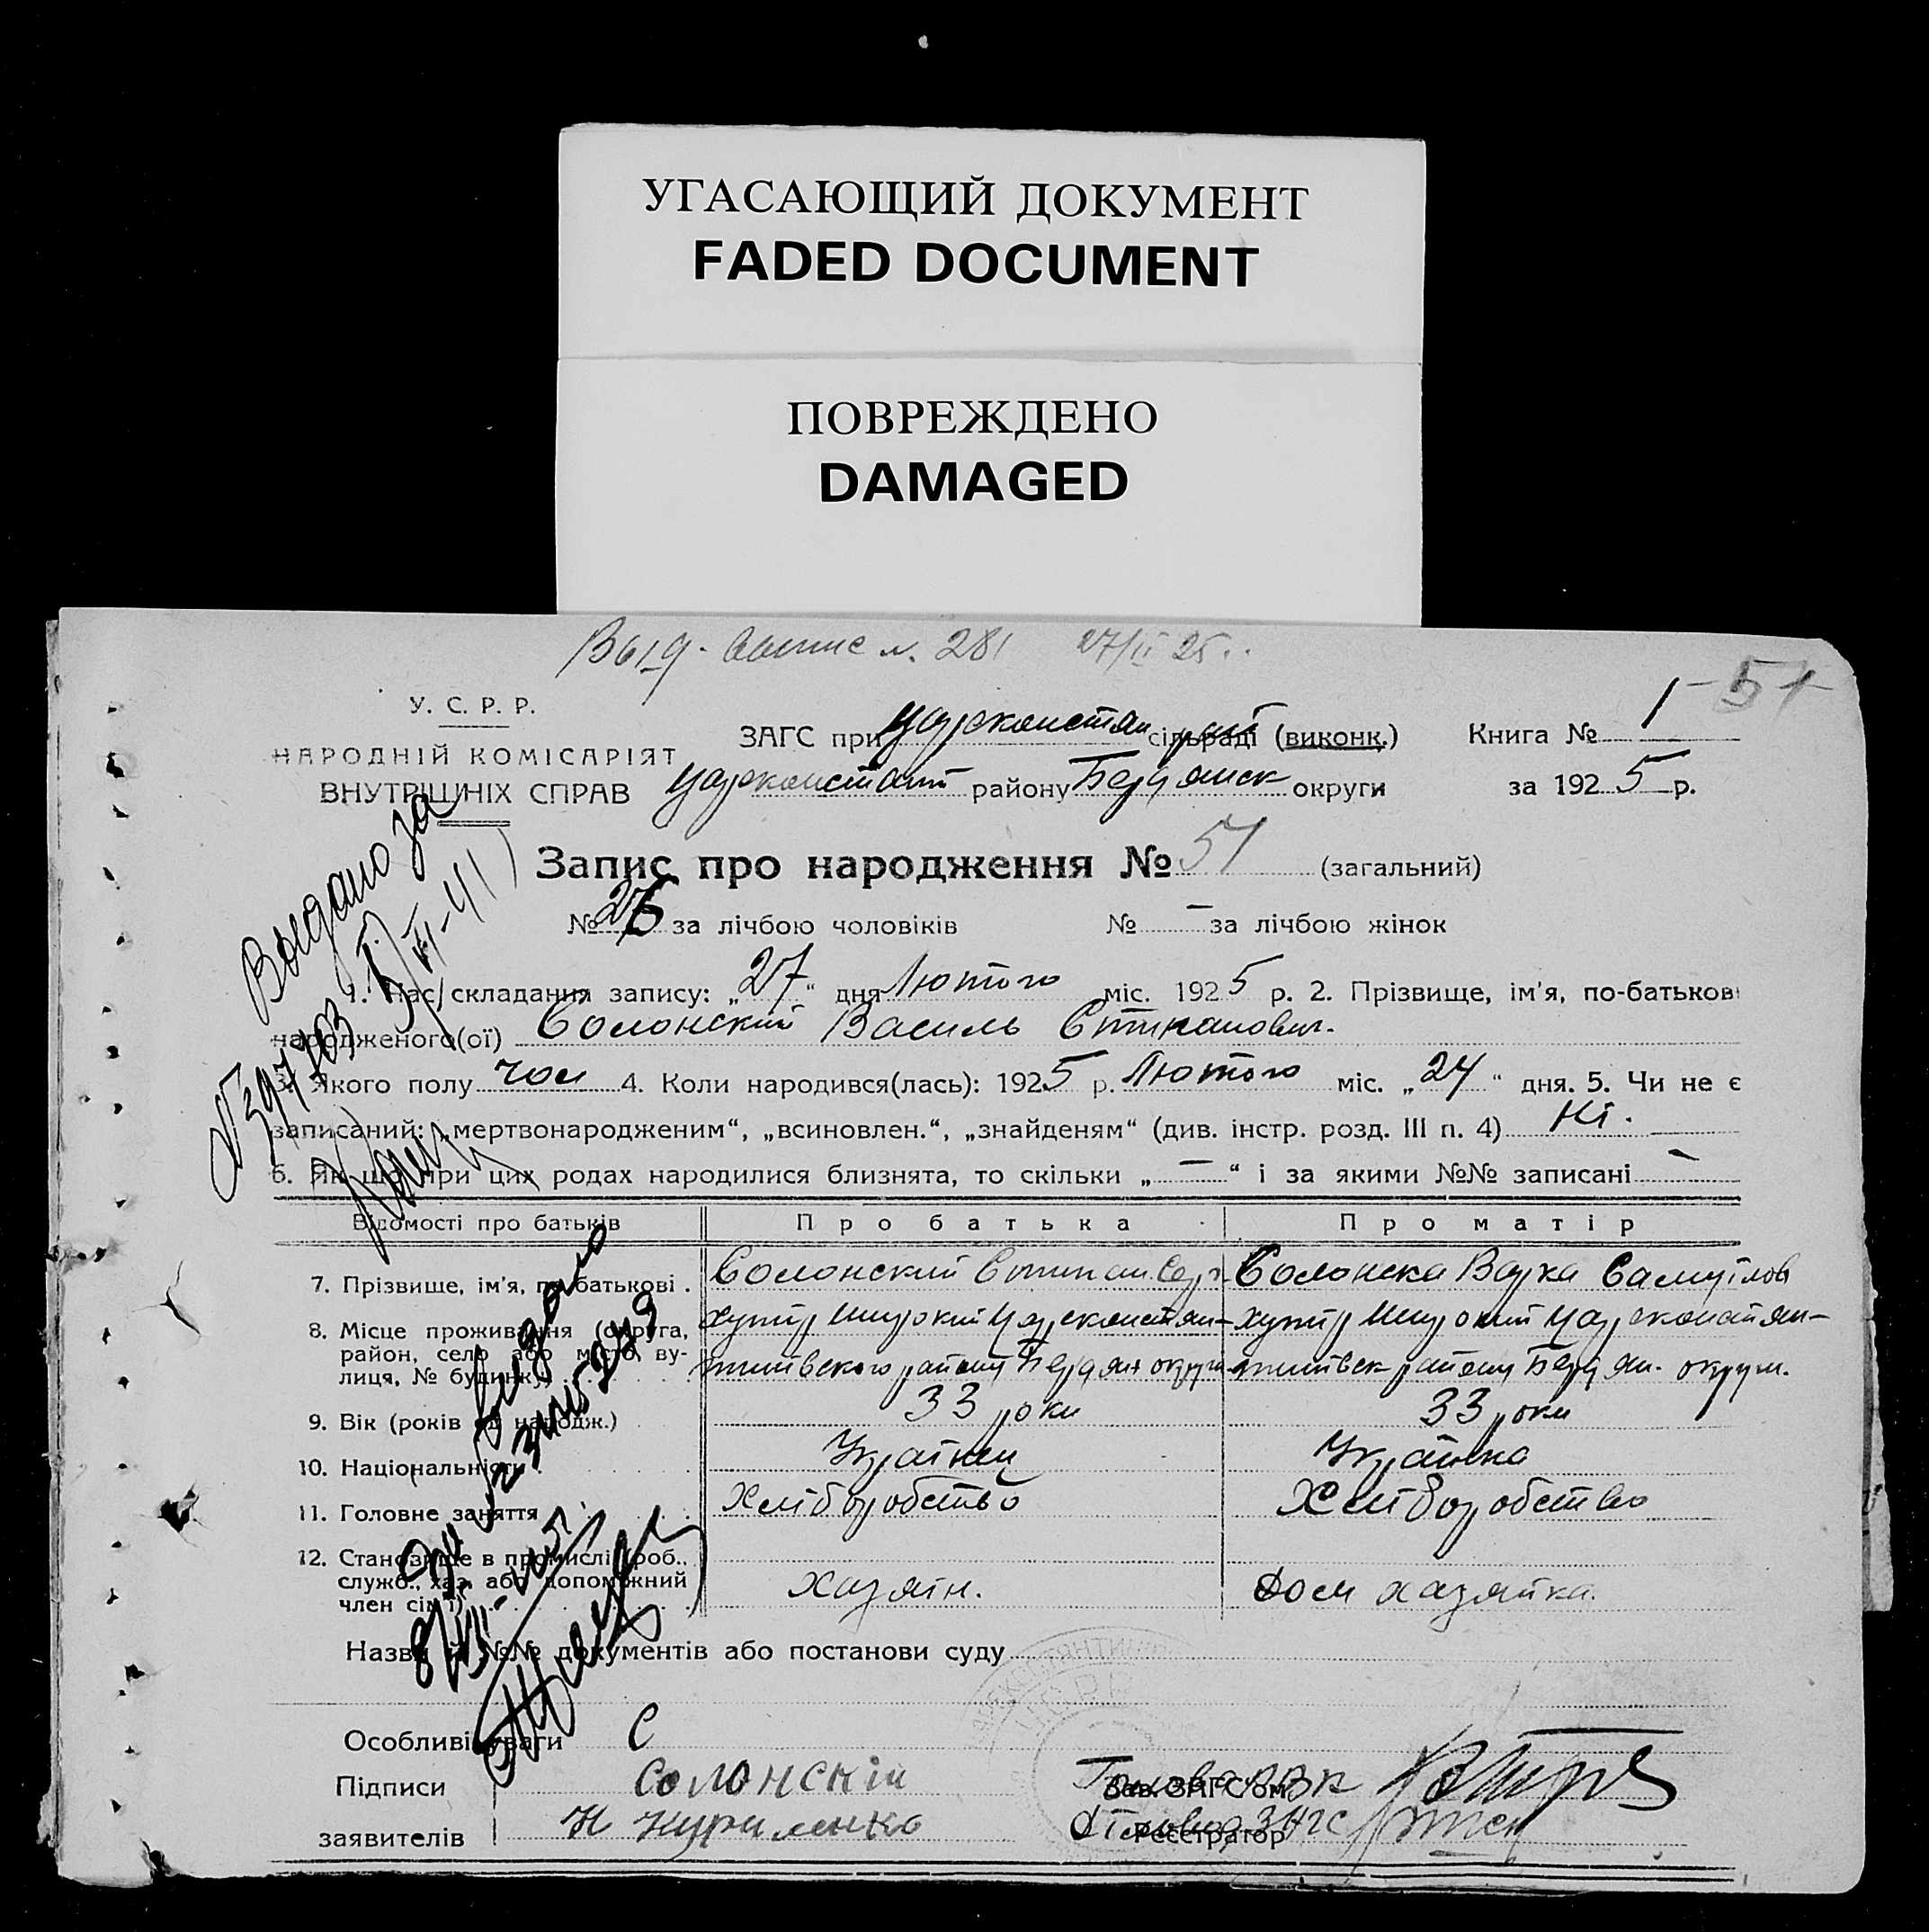 УГАСАЮЩИЙ ДОКУМЕНТ
FADED DOCUMENT
ПОВРЕЖДЕНО
DAMAGED
Выд. выпис н. 281 27/II 25..
1 - 51
У. С. Р. Р.
НАРОДНІЙ КОМІСАРІЯТ
ВНУТРІШНІХ СПРАВ
ЗАГС при Цареконстан рай сільраді (виконк.)
Цареконстант району Бердянск округи
Книга № 1
за 1925 р.
Запис про народження № 51 (загальний)
№ 26 за лічбою чоловіків № – за лічбою жінок
1. Час складання запису: „27“ дня Лютого міс. 1925 р. 2. Прізвище, ім'я, по-батькові
народженого(ої) Солонский Василь Стипанович.
3. Якого полу чол 4. Коли народився(лась): 1925 р. Лютого міс. „24“ дня. 5. Чи не є
записаний: „мертвонародженим“, „всиновлен.“, „знайденям“ (див. інстр. розд. III п. 4) Ні.
6. Як що при цих родах народилися близнята, то скільки „ – “ і за якими №№ записані –
Відомості про батьків Про батька Про матір
7. Прізвище, ім'я, по батькові . Солонский Стипан Солонска Варка Самуілов
8. Місце проживання (округа, район, село або місто, вулиця, № будинку) хутір Широкий Царенконстан-тинівского району Бердян округи хутір Широкий Царенконстан-тинівск району Бердян. округи.
9. Вік (років од народж.) 33 роки 33 роки
10. Національність Українец Українка
11. Головне заняття Хліборобство Хліборобство
12. Становище в промислі (роб., служб., хаз. або допоміжний член сім'ї) хазяін. дом хазяйка.
Назви й №№ документів або постанови суду
Особливі уваги С
Підписи Солонскій
заявителів Н Куриленко
Зав. ЗАГС'ом
Голова РВК
Реєстратор
Діловод ЗАГС
Выдано за
№397703
Выдано